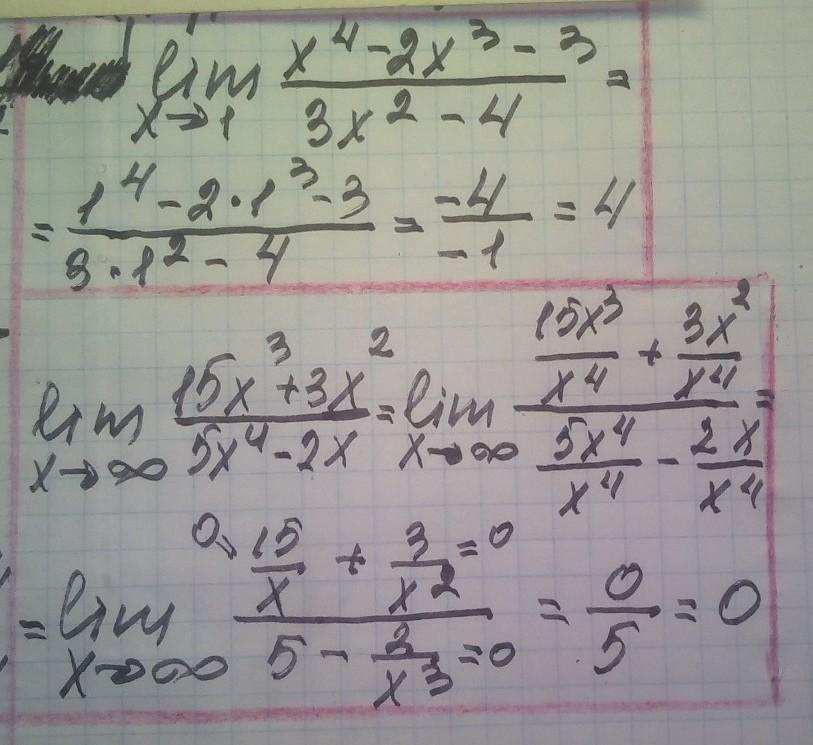 lim x→1 (x⁴ - 2x³ - 3)/(3x² - 4) =
= (1⁴ - 2·1³ - 3)/(3·1² - 4) = -4/-1 = 4
lim x→∞ (15x³ + 3x²)/(5x⁴ - 2x) = lim x→∞ (15x³/x⁴ + 3x²/x⁴)/(5x⁴/x⁴ - 2x/x⁴) =
= lim x→∞ (0 15/x + 3/x² = 0)/(5 - 2/x³ = 0) = 0/5 = 0